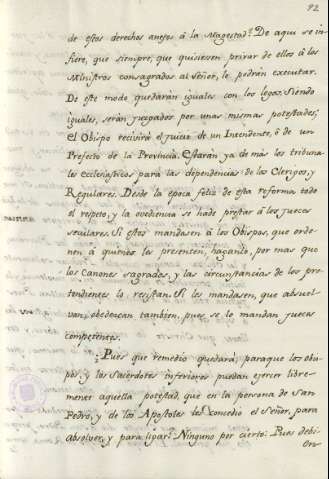 92
de estos derechos anejos à la Magestad? De aqui se in-
fiere, que siempre, que quisiesen privar de ellos à los
Ministros consagrados al Señor, lo podràn executar.
De este modo quedaràn iguales con los legos: Siendo
iguales, seràn juzgados por unas mismas potestades;
el Obispo recivirà el juicio de un Intendente, ò de un
Prefecto de la Provincia. Estaràn ya de màs los tribuna-
les Eclesiasticos para las dependencias de los Clerigos, y
Regulares. Desde la epoca feliz de esta reforma todo
el respeto, y la ovediencia se ha de prestar à los jueces
seculares. Si estos mandasen à los Obispos, que orde-
nen à quienes les presenten, haganlo, por mas que
los Canones sagrados, y las circunstancias de los pre-
tendientes lo resistan. Si les mandasen, que absuel-
van, obedezcan tambien, pues se lo mandan jueces
competentes.
¿Pues que remedio quedarà, paraque los obis-
pos, y los Sacerdotes inferiores puedan ejercer libre-
mente aquella potestad, que en la persona de San
Pedro, y de los Apostoles les concedio el Señor, para
absolver, y para ligar? Ninguno por cierto: Pues debi-